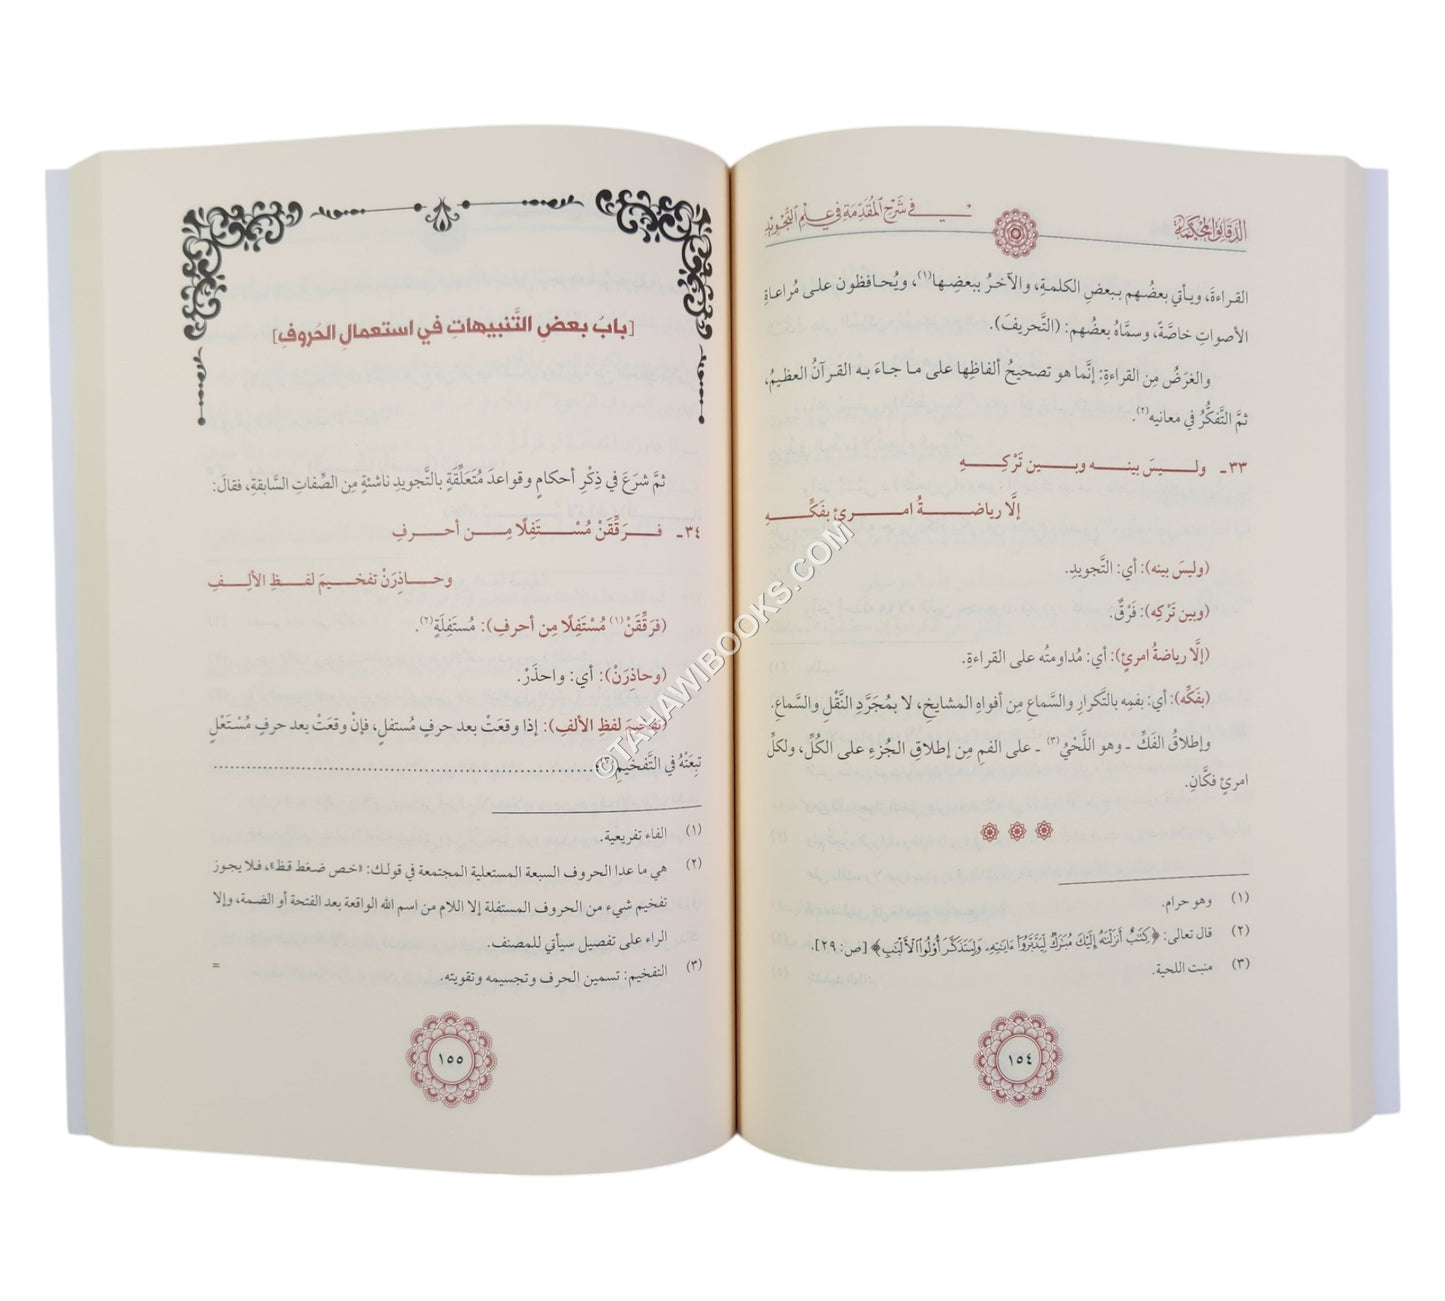 الدقائق المحكمة
في شرح المقدمة في علم التجويد
القراءةَ، ويأتي بعضُهم ببعضِ الكلمةِ، والآخرُ ببعضِها(١)، ويُحافظون على مُراعاةِ
الأصواتِ خاصَّةً، وسمَّاهُ بعضُهم: (التَّحريفَ).
والغرَضُ مِن القراءةِ: إنَّما هو تصحيحُ ألفاظِها على ما جاءَ به القرآنُ العظيمُ،
ثمَّ التَّفكُّرُ في معانيه(٢).
٣٣ـ وليسَ بينه وبين تَرْكِهِ
إلَّا رياضةُ امرئٍ بفَكِّهِ
(وليسَ بينه): أي: التَّجويدِ.
(وبين تَرْكِه): فَرْقٌ.
(إلَّا رياضةُ امرئٍ): أي: مُداومتُه على القراءةِ.
(بفَكِّه): أي: بفمِه بالتَّكرارِ والسَّماعِ مِن أفواهِ المشايخِ، لا بمُجَرَّدِ النَّقْلِ والسَّماعِ.
وإطلاقُ الفَكِّ ـ وهو اللَّحْيُ(٣) ـ على الفمِ مِن إطلاقِ الجُزءِ على الكُلِّ، ولكلِّ
امرئٍ فكَّانِ.
(١) وهو حرام.
(٢) قال تعالى: ﴿كِتَٰبٌ أَنزَلْنَٰهُ إِلَيْكَ مُبَٰرَكٌ لِّيَدَّبَّرُوٓاْ ءَايَٰتِهِۦ وَلِيَتَذَكَّرَ أُوْلُواْ ٱلْأَلْبَٰبِ﴾ [ص: ٢٩].
(٣) منبت اللحية.
١٥٤
[بابُ بعضِ التَّنبيهاتِ في استعمالِ الحُروفِ]
ثمَّ شرَعَ في ذِكْرِ أحكامٍ وقواعدَ مُتَعلِّقَةٍ بالتَّجويدِ ناشئةٍ مِن الصِّفاتِ السَّابقةِ، فقالَ:
٣٤ـ فرَقِّقَنْ مُسْتَفِلًا مِن أحرفِ
وحاذِرَنْ تفخيمَ لفظِ الألِفِ
(فرَقِّقَنْ(١) مُسْتَفِلًا مِن أحرفِ): مُستَفِلَةٍ(٢).
(وحاذِرَنْ): أي: واحذَرْ.
(تفخيمَ لفظِ الألفِ): إذا وقعَتْ بعد حرفٍ مُستفلٍ، فإنْ وقعَتْ بعد حرفٍ مُسْتَعْلٍ
تبِعَتْهُ في التَّفخيمِ(٣)؛ ........................................
(١) الفاء تفريعية.
(٢) هي ما عدا الحروف السبعة المستعلية المجتمعة في قولك: «خص ضغط قظ»، فلا يجوز
تفخيم شيء من الحروف المستفلة إلا اللام من اسم الله الواقعة بعد الفتحة أو الضمة، وإلا
الراء على تفصيل سيأتي للمصنف.
(٣) التفخيم: تسمين الحرف وتجسيمه وتقويته. =
١٥٥
©TAHAWIBOOKS.COM